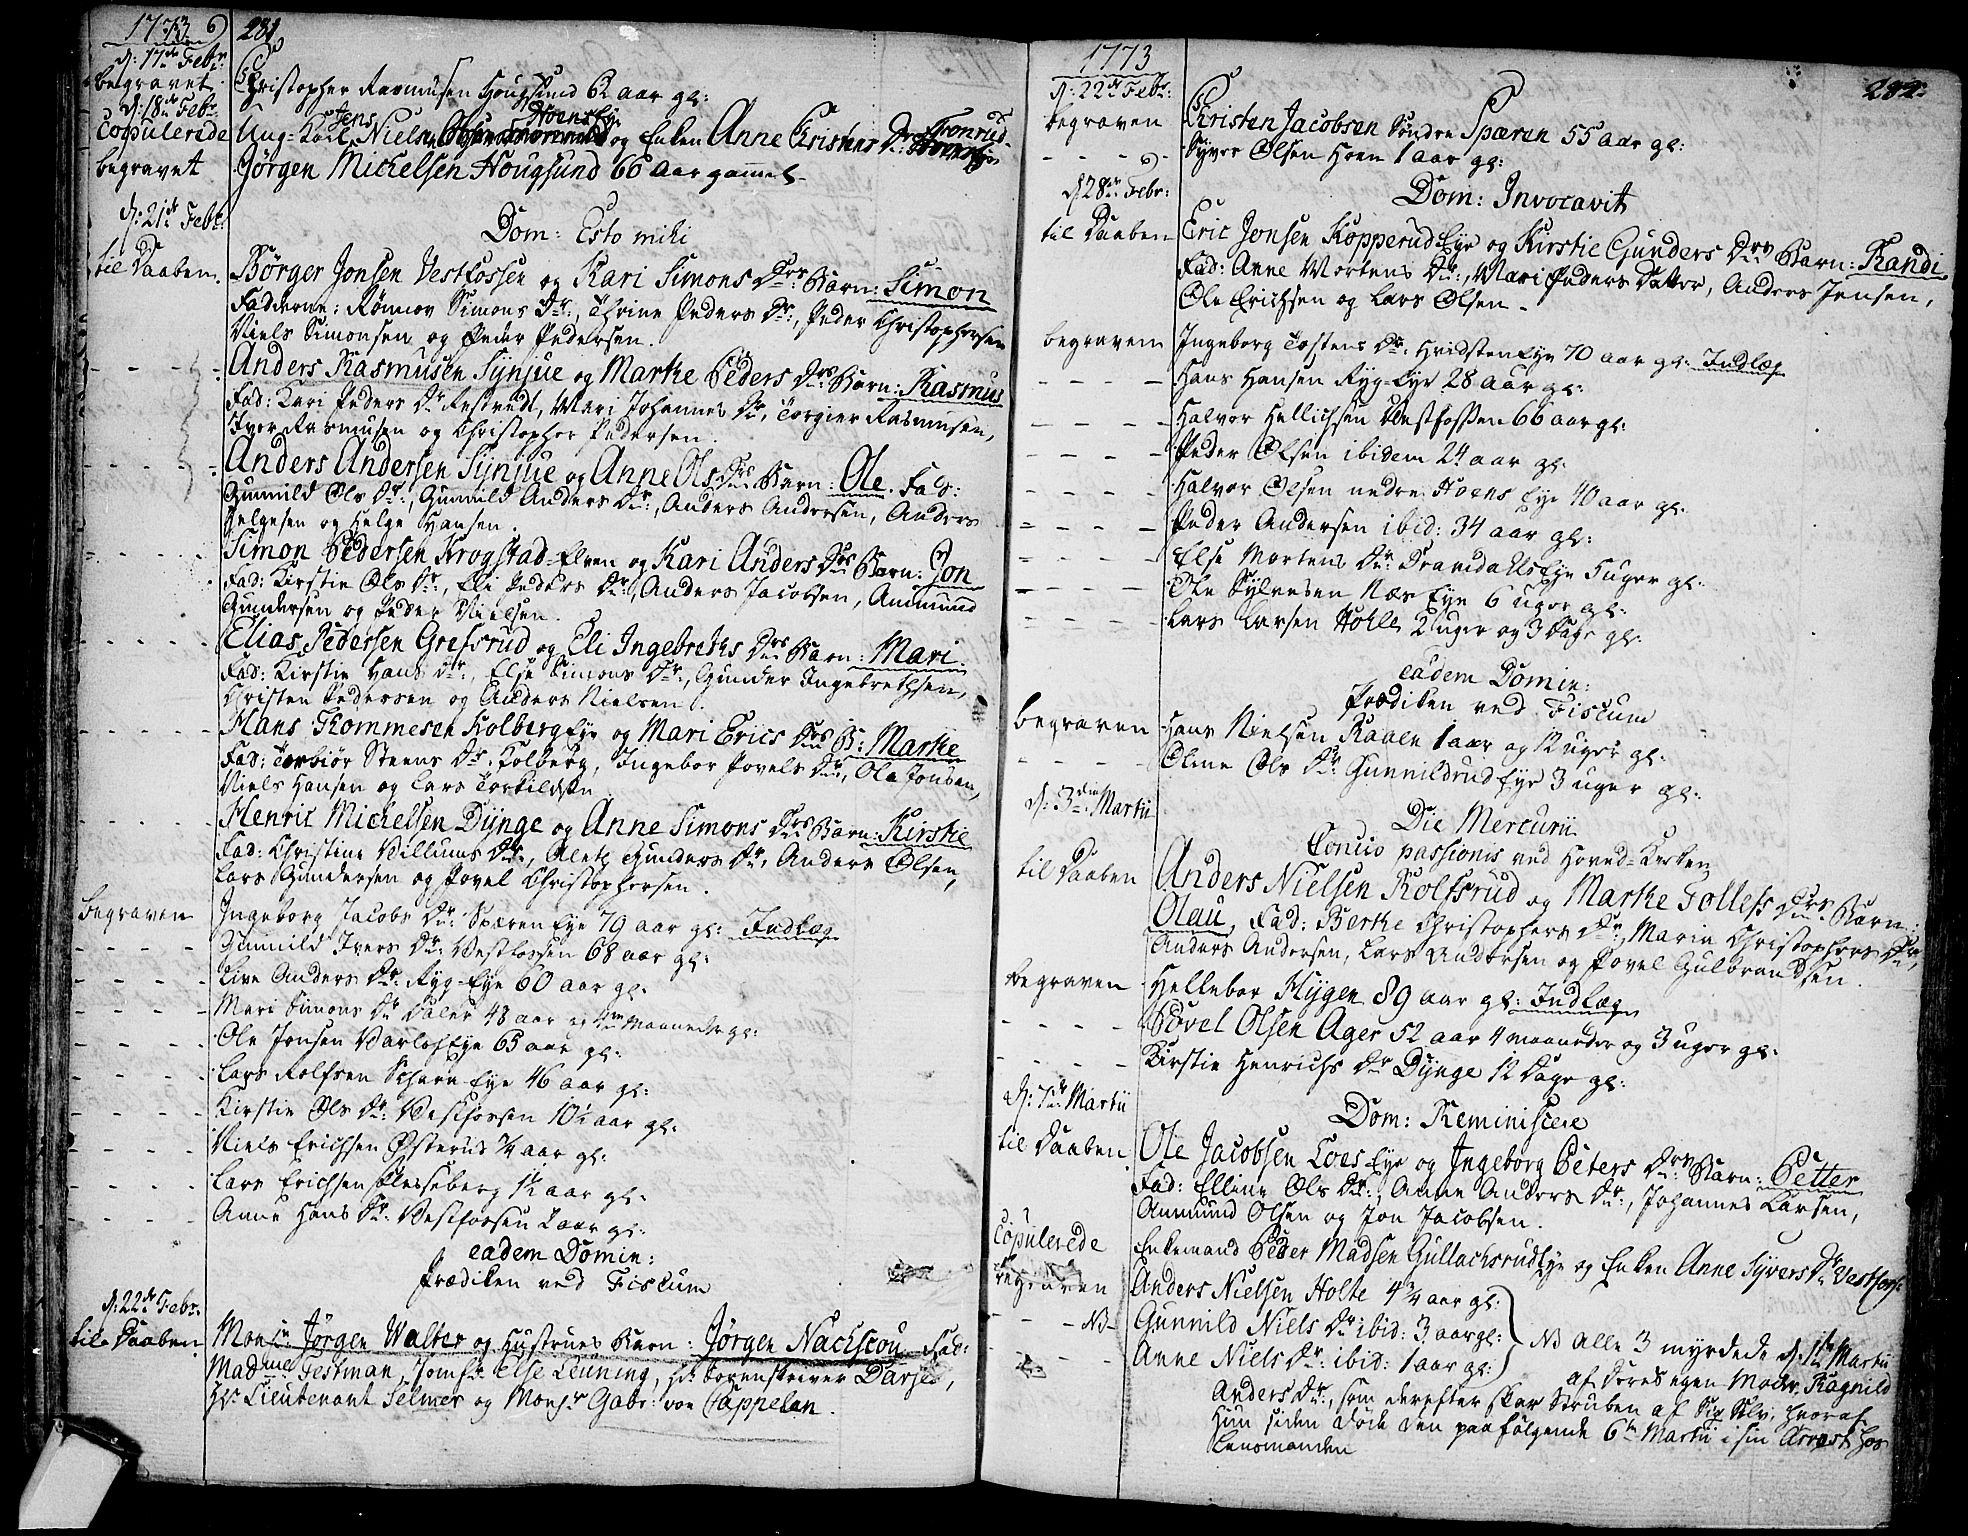 1773
281
d: 17de Febr.
begravet
Christopher Rasmusen Hougsund 62 aar gl:
d: 18de Febr.
Copulerede
Ung-Karl Jens Nielsen HoensEye og Enken Anne Kristens Dr. Tronrud
begravet
Jørgen Michelsen Hougsund 60 aar gammel.
d: 21de Febr:
Dom: Esto mihi
til Daaben
Børger Jonsen Vestfossen og Kari Simons Drs Barn: Simon
Fadderne: Rønnov Simons Dr:, Thrine Peders Dr:, Peder Christophersen
Niels Simonsen og Peder Pedersen.
Anders Rasmusen Synjue og Marthe Peders Drs Barn: Rasmus
Fad: Kari Peders Dr, Mari Johannes Dr, Torgier Rasmusen,
Iver Rasmusen og Christopher Pedersen.
Anders Andersen Synjue og Anne Ols Drs Barn: Ole. Fad:
Gunnild Ols Dr:, Gunnild Anders Dr:, Anders Andersen, Anders
Helgesen og Helge Hansen.
Simon Pedersen Krogstad-Elven og Kari Anders Drs Barn: Jon
Fad: Kirstie Ols Dr, Eli Peders Dr, Anders Jacobsen, Anmund
Gundersen og Peder Nielsen.
Elias Pedersen Grefsrud og Eli Ingebreths Drs Barn: Mari.
Fad: Kirstie Hans Dr:, Else Simons Dr:, Gunder Ingebrethsen,
Christen Pedersen og Anders Nielsen.
Hans Thommesen KolbergEye og Mari Erics Drs B: Marthe
Fad: Torbiør Steens Dr. Kolberg, Ingebor Povels Dr, Ole Jonsen,
Niels Hansen og Lars Torkildsen
Henric Michelsen Dynge og Anne Simons Drs Barn: Kirstie
Fad: Christine Villums Dr:, Aleth Gunders Dr, Anders Olsen,
Lars Gundersen og Povel Christophersen.
begraven
Ingeborg Jacobs Dr: SpærenEye 79 aar gl: Indlæg
Gunnild Ivers Dr: Vestfossen 68 aar gl:
Live Anders Dr: Ryg-Eye 60 aar gl.
Mari Simons Dr Daler 43 aar og Maaneder gl:
Ole Jonsen VarlofEye 63 aar gl:
Lars Rolfsen Eye 46 aar gl:
Kirstie Ols Dr: Vestfossen 10½ aar gl:
Niels Erichsen Østerud ¾ aar gl:
Lars Erichsen Flesseberg 1½ aar gl:
Anne Hans Dr: Vestfossen 2 aar gl:
eadem Domin:
Prædiken ved Fiscum
d: 22de Febr.
til Daaben
Monsr Jørgen Walter og Hustrues Barn: Jørgen Nachscou Fad:
Madme Festman, Jomfr Else Leuning, Hr. Sorenskriver Darjes,
Hr Lieutenant Selmer og Monsr Gabr: von Cappelen.
1773
282
d: 22de Febr:
begraven
Christen Jacobsen Søndre Spæren 55 aar gl:
Syver Olsen Hoen 1 aar gl:
d: 28de Febr:
Dom: Invocavit
til Daaben
Eric Jonsen KopperudEye og Kirstie Gunders Drs Barn: Randi
Fad: Anne Mortens Dr:, Mari Peders Datter, Anders Jensen,
Ole Erichsen og Lars Olsen.
begraven
Ingeborg Tostens Dr: HvidstenEye 70 aar gl: Indlæg
Hans Hansen Ryg-Eye 28 aar gl:
Halvor Hellichsen Vestfossen 66 aar gl:
Peder Olsen ibidem 24 aar gl:
Halvor Olsen nedre Hoens Eye 40 aar gl:
Peder Andersen ibid: 34 aar gl:
Else Mortens Dr: DramdalsEye 5 uger gl:
Ole Sylvesen Næs Eye 6 uger gl:
Lars Larsen Holte 2 uger og 3 Dage gl:
eadem Domin:
Prædiken ved Fiscum
begraven
Hans Nielsen Raaen 1 aar og 12 uger gl:
Oline Ols Dr: GunnildrudEye 3 uger gl:
d: 3die Martii
Die Mercurii
Concio passionis ved Hoved-Kirken
til Daaben
Anders Nielsen Rolfsrud og Marthe Tollefs Drs Barn:
Olau, Fad: Berthe Christophers Dr, Maria Christophers Dr,
Anders Andersen, Lars Andersen og Povel Gulbrandsen.
begraven
Hellebor Hygen 89 aar gl: Indlæg
Povel Olsen Ager 52 aar 4 maaneder og 3 uger gl:
Kirstie Henrichs Dr Dynge 12 Dage gl:
d: 7de Martii
Dom: Reminiscere
til Daaben
Ole Jacobsen Loes-Eye og Ingeborg Peters Drs Barn: Petter
Fad: Elline Ols Dr:, Anne Anders Dr:, Johannes Larsen,
Anmund Olsen og Jon Jacobsen.
Copulerede
Enkemand Peder Madsen GullachsrudEye og Enken Anne Syvers Dr Vestfoss:
begraven
Anders Nielsen Holte 4¾ aar gl:
NB
Gunnild Niels Dr: ibid: 3 aar gl:
Anne Niels Dr: ibid: 1 aar gl:
NB alle 3 myrdede d. 1ste Martii
af deres egen Moder, Ragnild
Anders Dr:, som derefter skar Struben af Sig Selv, hvoraf
hun siden døde den paafølgende 6te Martii i sin Arrest hos
Lensmanden